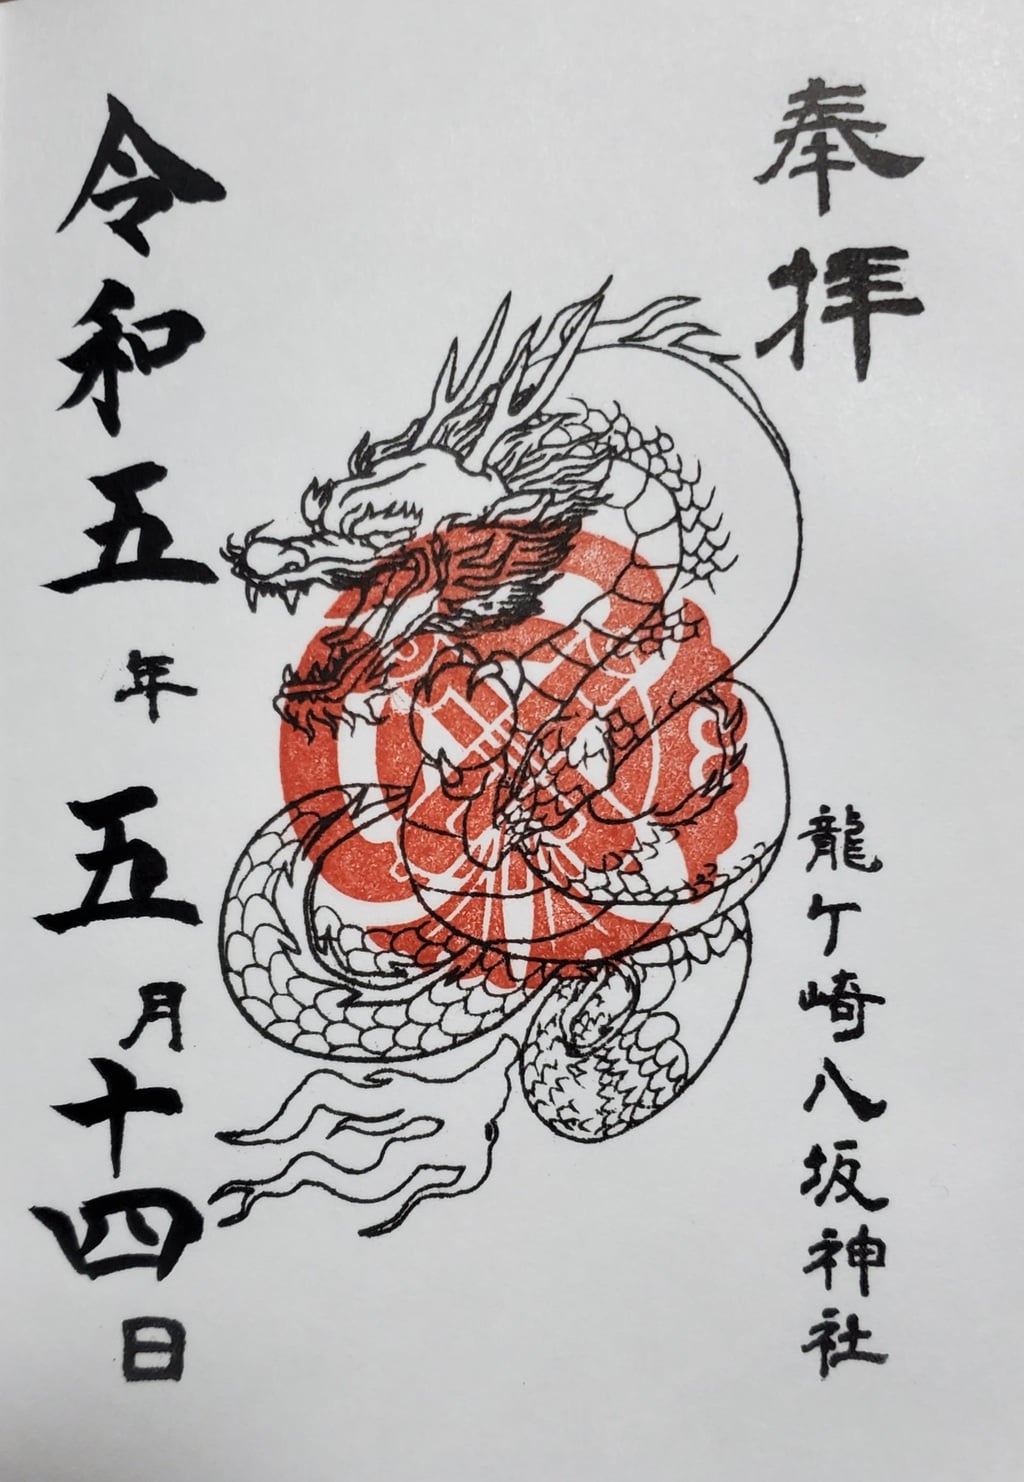 奉拝
龍ケ崎八坂神社
令和五年五月十四日